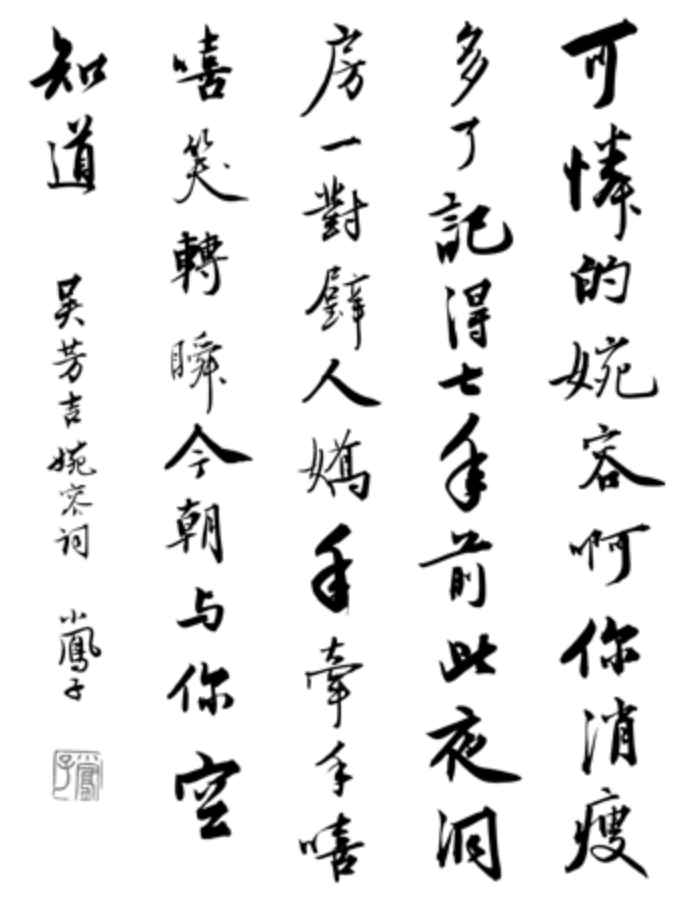 可憐的婉容啊你消瘦
多了記得七年前此夜洞
房一對璧人嬌手牽手嘻
嘻笑轉瞬今朝与你空
知道
吴芳吉婉容词
小鳳子